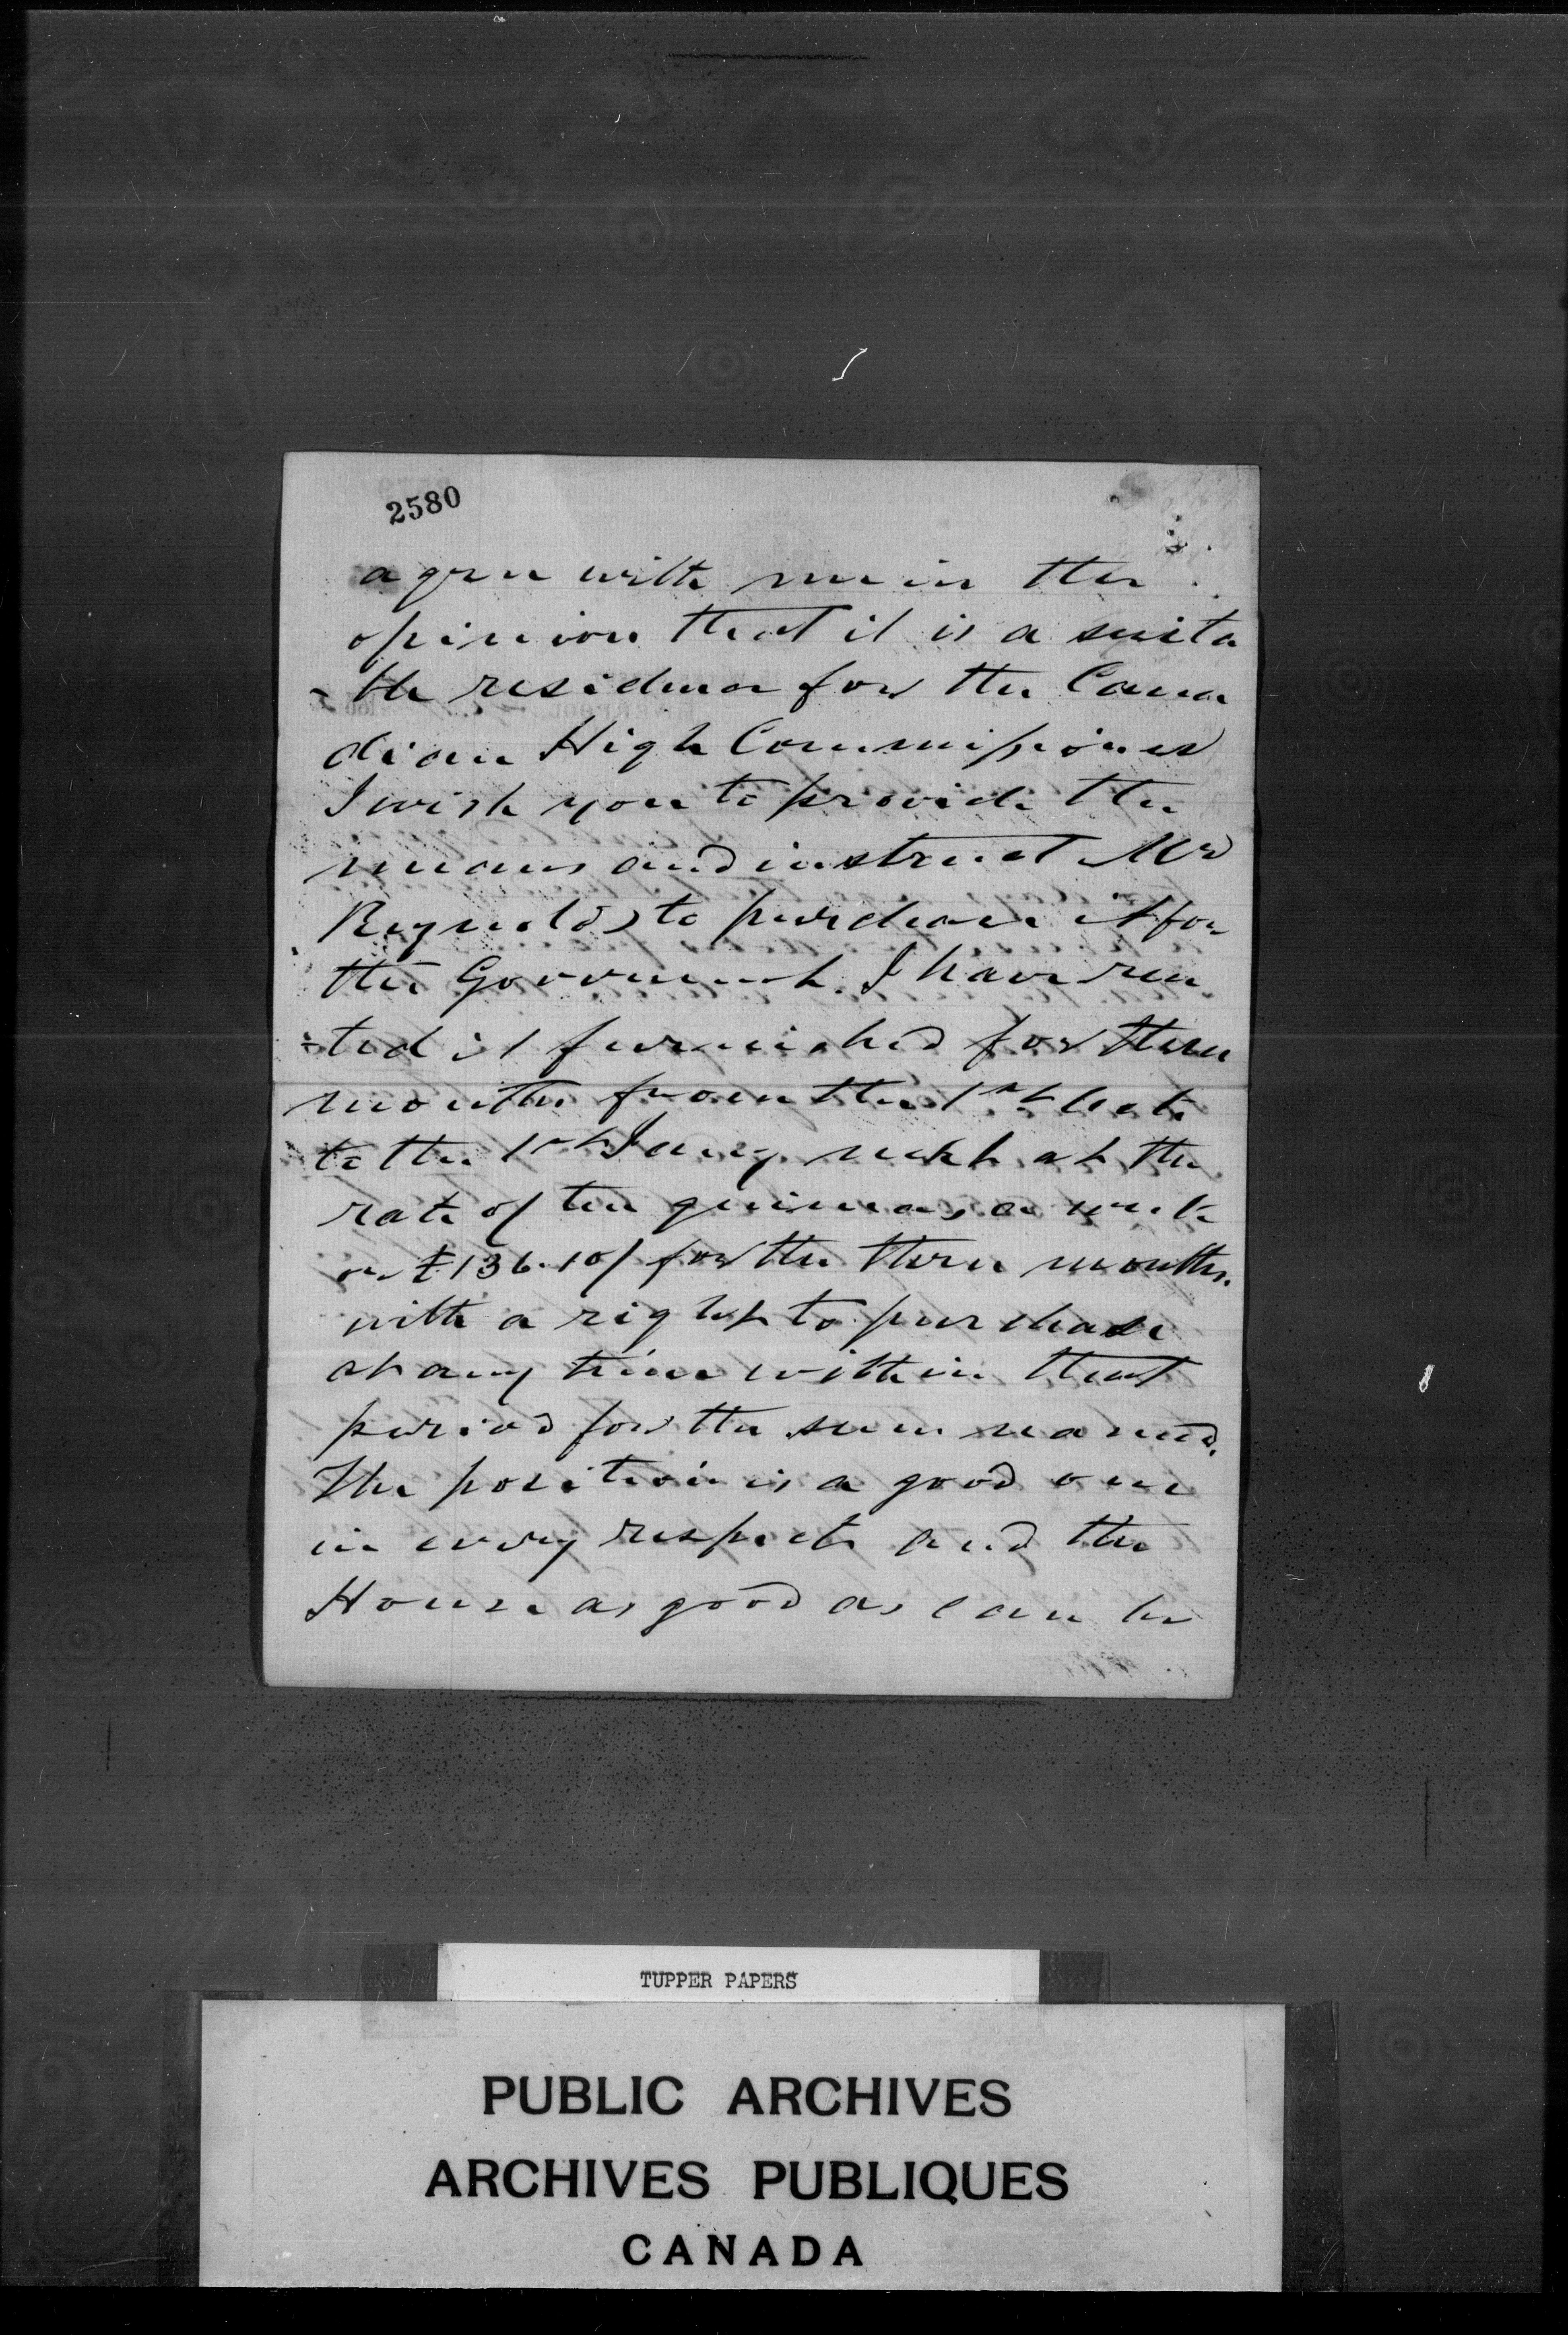 2580
agree with me in the
opinion that it is a suita
-ble residence for the Cana
dian High Commissioner
I wish you to provide the
means and instruct Mr
Reynolds to purchase it for
the Government. I have ren
-ted it furnished for three
months from the 1st Oct.
to the 1st Jany next at the
rate of ten guineas a week
or £136.10/ for the three months.
with a right to purchase
at any time within that
period for the sum named.
The position is a good one
in every respect and the
House as good as can be
TUPPER PAPERS
PUBLIC ARCHIVES
ARCHIVES PUBLIQUES
CANADA